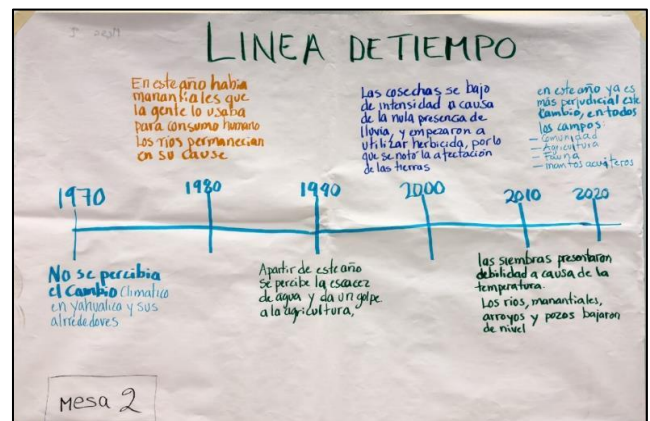 LINEA DE TIEMPO
En este año habia
manantiales que
la gente lo usaba
para consumo humano
Los ríos permanecian
en su cause
Las cosechas se bajo
de intensidad a causa
de la nula presencia de
lluvia, y empezaron a
utilizar herbicida, por lo
que se notó la afectación
de las tierras
en este año ya es
más perjudicial este
Cambio, en todos
los campos:
- Comunidad
- Agricultura
- Fauna
- mantos acuiteros
1970 1980 1990 2000 2010 2020
No se percibia
el Cambio Climatico
en yahualica y sus
alrrededores
Apartir de este año
se percibe la escacez
de agua y da un golpe
a la agricultura,
las siembras presentaron
debilidad a causa de la
temperatura.
Los rios, manantiales,
arroyos y pozos bajaron
de nivel
Mesa 2